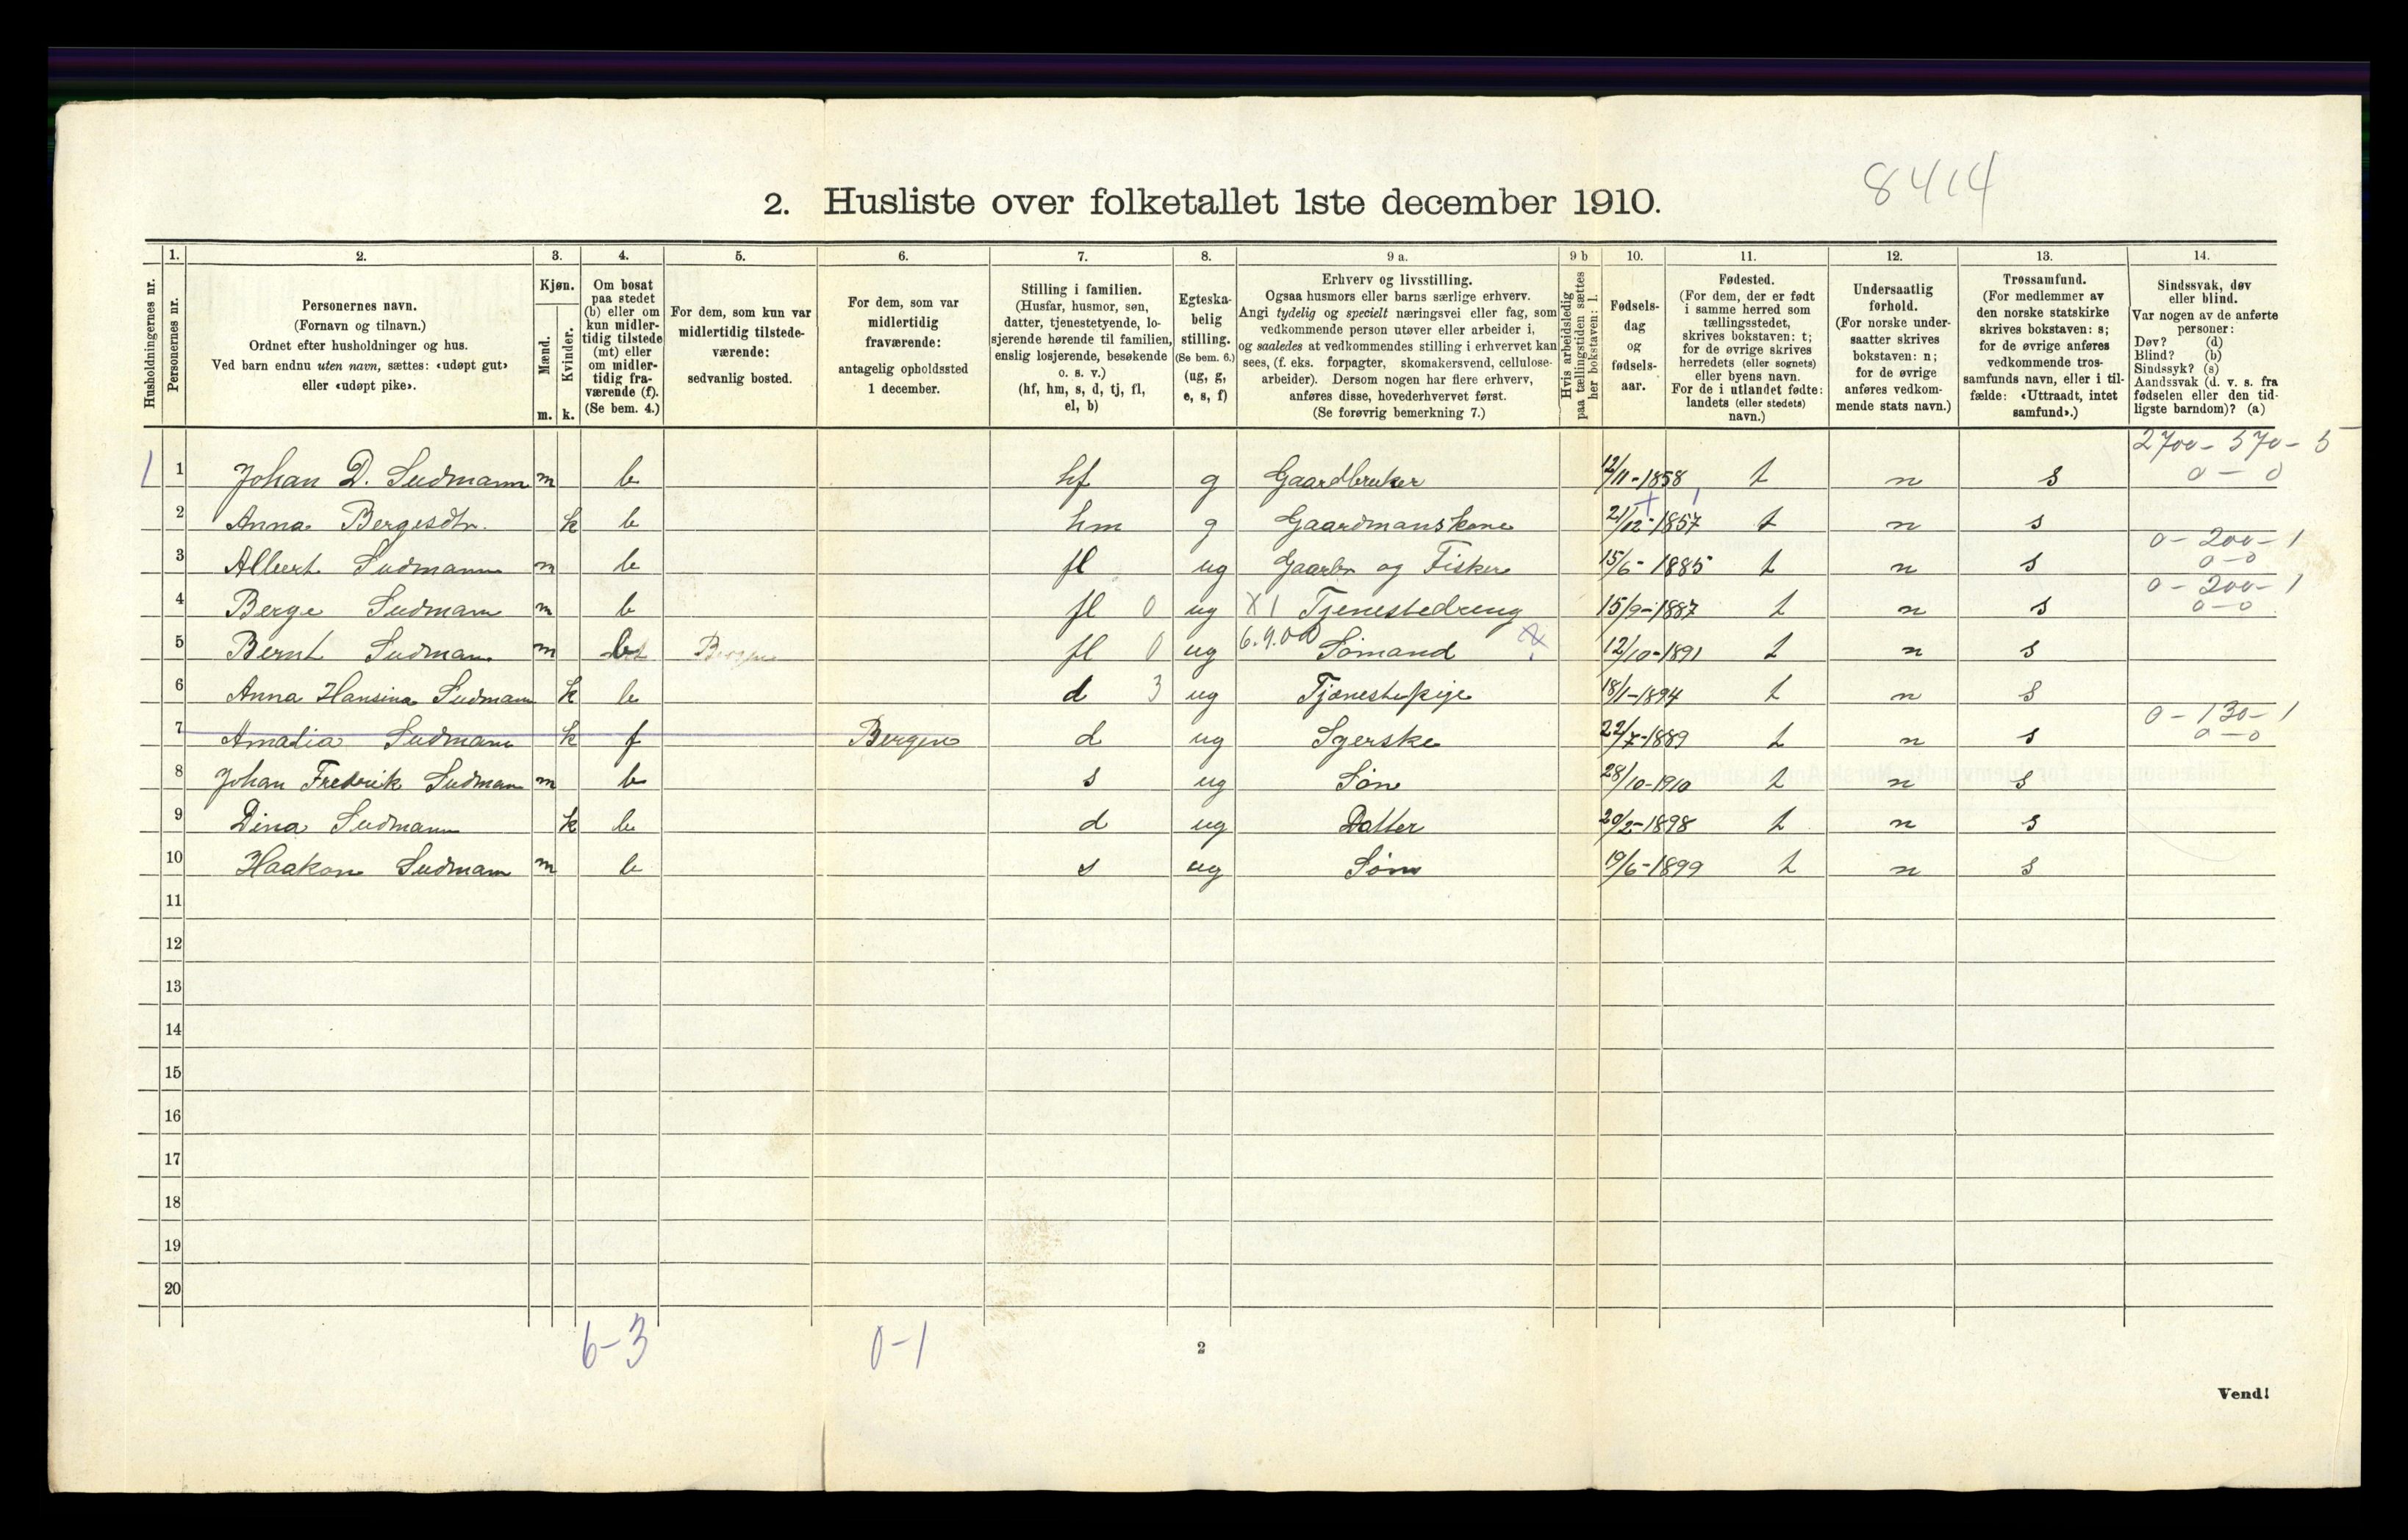 8414
2. Husliste over folketallet 1ste december 1910.
Husholdningernes nr.
1. Personernes nr.
2. Personernes navn.
(Fornavn og tilnavn.)
Ordnet efter husholdninger og hus.
Ved barn endnu uten navn, sættes: «udøpt gut»
eller «udøpt pike».
3. Kjøn.
Mænd. m.
Kvinder. k.
4. Om bosat
paa stedet
(b) eller om
kun midler-
tidig tilstede
(mt) eller
om midler-
tidig fra-
værende (f).
(Se bem. 4.)
5. For dem, som kun var
midlertidig tilstede-
værende:
sedvanlig bosted.
6. For dem, som var
midlertidig
fraværende:
antagelig opholdssted
1 december.
7. Stilling i familien.
(Husfar, husmor, søn,
datter, tjenestetyende, lo-
sjerende hørende til familien,
enslig losjerende, besøkende
o. s. v.)
(hf, hm, s, d, tj, fl,
el, b)
8. Egteska-
belig
stilling.
(Se bem. 6.)
(ug, g,
e, s, f)
9 a. Erhverv og livsstilling.
Ogsaa husmors eller barns særlige erhverv.
Angi tydelig og specielt næringsvei eller fag, som
vedkommende person utøver eller arbeider i,
og saaledes at vedkommendes stilling i erhvervet kan
sees, (f. eks. forpagter, skomakersvend, cellulose-
arbeider). Dersom nogen har flere erhverv,
anføres disse, hovederhvervet først.
(Se forøvrig bemerkning 7.)
9 b Hvis arbeidsledig
paa tællingstiden sættes
her bokstaven: l.
10. Fødsels-
dag
og
fødsels-
aar.
11. Fødested.
(For dem, der er født
i samme herred som
tællingsstedet,
skrives bokstaven: t;
for de øvrige skrives
herredets (eller sognets)
eller byens navn.
For de i utlandet fødte:
landets (eller stedets)
navn.)
12. Undersaatlig
forhold.
(For norske under-
saatter skrives
bokstaven: n;
for de øvrige
anføres vedkom-
mende stats navn.)
13. Trossamfund.
(For medlemmer av
den norske statskirke
skrives bokstaven: s;
for de øvrige anføres
vedkommende tros-
samfunds navn, eller i til-
fælde: «Uttraadt, intet
samfund».)
14. Sindssvak, døv
eller blind.
Var nogen av de anførte
personer:
Døv? (d)
Blind? (b)
Sindssyk? (s)
Aandssvak (d. v. s. fra
fødselen eller den tid-
ligste barndom)? (a)
2700 - 570 - 5
1 1 Johan D. Sudmann m b hf g Gaardbruker 12/11-1858 t n s 0 - 0
2 Anna Bergesdtr. k b hm g Gaardmanskone 21/12-1857 t n s
0 - 200 - 1
3 Albert Sudmann m b fl ug Gaarbr og Fisker 15/6-1885 t n s 0-0
0 - 200 - 1
4 Berge Sudmann m b fl 0 ug X1 Tjenestedreng 15/9-1887 t n s 0-0
5 Bernt Sudman m b Bergen fl 0 ug 6.9.00 Sømand 12/10-1891 t n s
6 Anna Hansina Sudmann k b d 3 ug Tjænestepige 18/1-1894 t n s
0 - 130 - 1
7 Amalia Sudmann k f Bergen d ug Syerske 22/7-1889 t n s 0-0
8 Johan Fredrik Sudman m b s ug Søn 28/10-1910 t n s
9 Dina Sudmann k b d ug Datter 20/2-1898 t n s
10 Haakon Sudmann m b s ug Søn 19/6-1899 t n s
11
12
13
14
15
16
17
18
19
20
6-3 0-1
2
Vend!